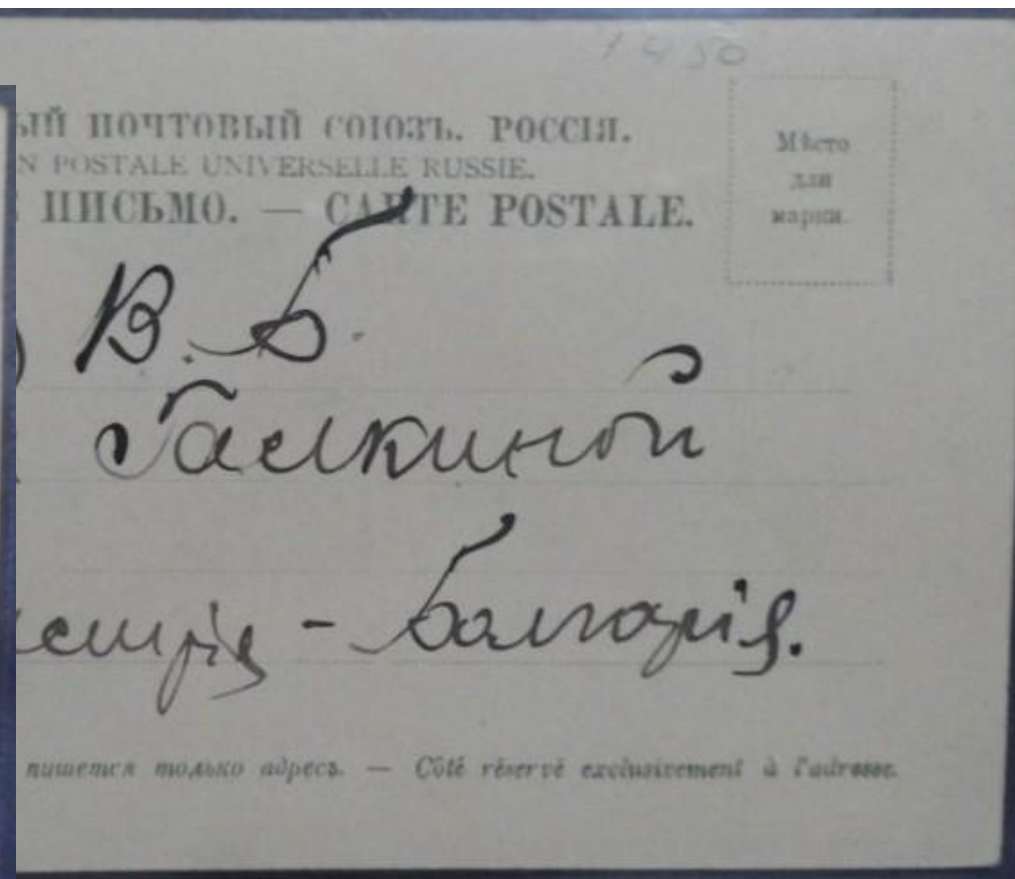 1450
ЫЙ ПОЧТОВЫЙ СОЮЗЪ. РОССІЯ.
N POSTALE UNIVERSELLE RUSSIE.
ПИСЬМО. — CARTE POSTALE.
Мѣсто
для
марки.
В. Б.
Галкиной
– Болгарія.
пишется только адресъ. — Côté réservé exclusivement à l'adresse.